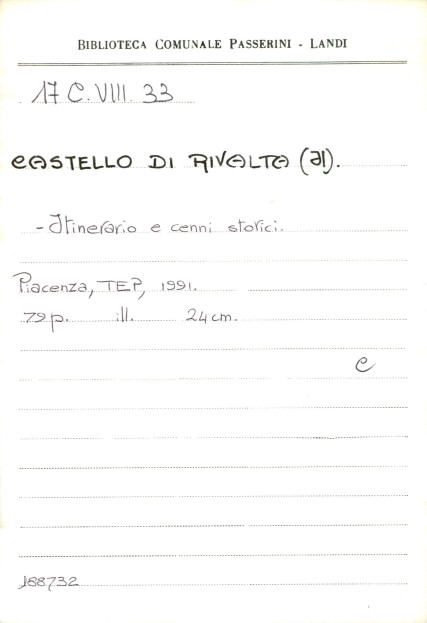 BIBLIOTECA COMUNALE PASSERINI - LANDI
17 C. VIII. 33
CASTELLO DI RIVALTA (Il).
- Itinerario e cenni storici.
Piacenza, TEP, 1991.
79 p. ill. 24 cm.
C
188732